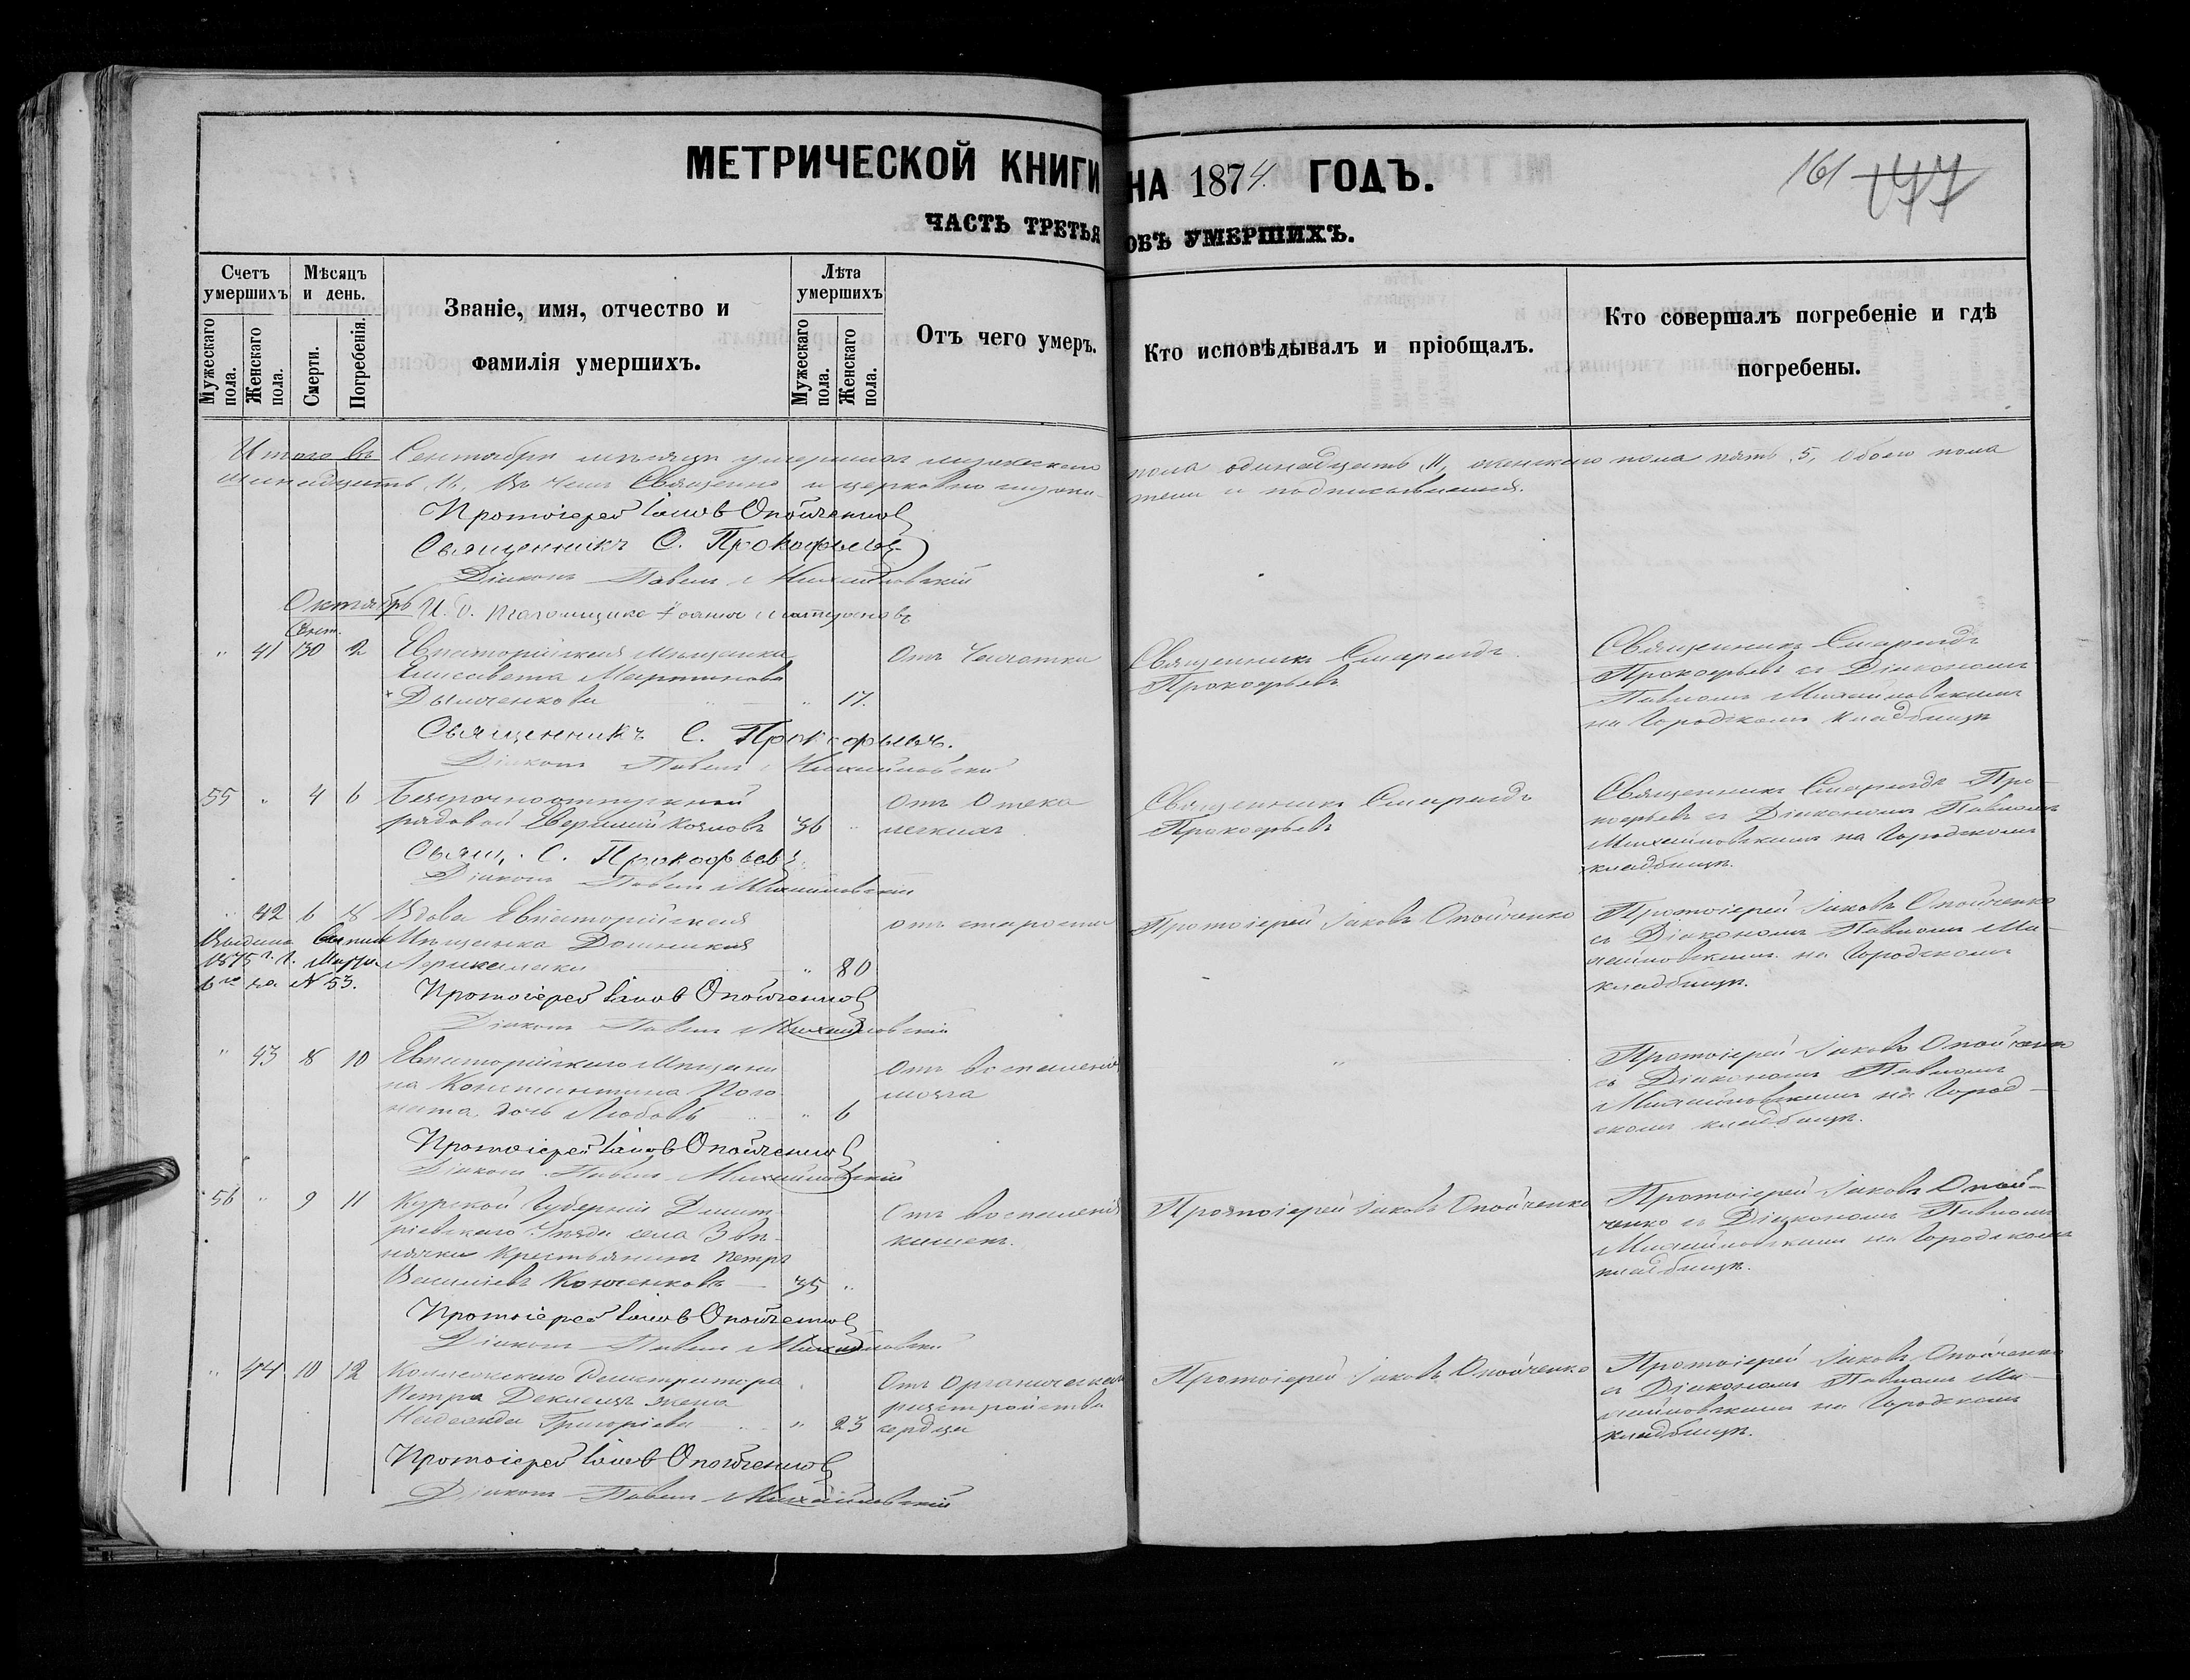 МЕТРИЧЕСКОЙ КНИГИ НА 1874 ГОДЪ.
161 177
ЧАСТЬ ТРЕТЬЯ ОБЪ УМЕРШИХЪ.
Счетъ умершихъ
Мужескаго пола.
Женскаго пола.
Мѣсяцъ и день.
Смерти.
Погребенія.
Званіе, имя, отчество и
фамилія умершихъ.
Лѣта умершихъ
Мужескаго пола.
Женскаго пола.
Отъ чего умеръ.
Кто исповѣдывалъ и пріобщалъ.
Кто совершалъ погребеніе и гдѣ
погребены.
Итого въ Сентябрѣ мѣсяцѣ умершихъ мужескаго пола одинадцать, 11, женскаго пола пять, 5, обоего пола
шестнадцать, 16, въ чемъ Священно и церковно служители и подписываемся.
Протоіерей Іаковъ Опойченко
Священникъ С. Прокофьевъ
Діаконъ Павелъ Михайловскій
Октябрь
И. д. Псаломщика
Сент.
" 41 30 2 Евпаторійская Мѣщанка Отъ Чахотки Священникъ Смарагдъ Священникъ Смарагдъ
Елисавета Мартинова Прокофьевъ Прокофьевъ съ Діакономъ
Дымченкова " 17. Павломъ Михайловскимъ
на Городскомъ кладбищѣ
Священникъ С. Прокофьевъ.
Діаконъ Павелъ Михайловскій
55 " 4 6 Безсрочноотпускной Отъ Отека Священникъ Смарагдъ Священникъ Смарагдъ Про-
рядовой 36 " легкихъ Прокофьевъ кофьевъ съ Діакономъ Павломъ
Михайловскимъ на Городскомъ
кладбищѣ.
Свящ. С. Прокофьевъ
Діаконъ Павелъ Михайловскій
" 42 6 8 Вдова Евпаторійская отъ старости Протоіерей Іаковъ Опойченко Протоіерей Іаковъ Опойченко
Мѣщанка съ Діакономъ Павломъ Ми-
" 80 хайловскимъ на Городскомъ
кладбищѣ.
1875 г. Марта
6го на № 53.
Протоіерей Іаковъ Опойченко
Діаконъ Павелъ Михайловскій
" 43 8 10 Евпаторійскаго Мѣщани- Отъ воспаленія " Протоіерей Іаковъ Опойченко
на Константина мозга съ Діакономъ Павломъ
дочь Любовь " 6 Михайловскимъ на Город-
скомъ кладбищѣ.
Протоіерей Іаковъ Опойченко
Діаконъ Павелъ Михайловскій
56 " 9 11 Курской Губерніи Дмит- Отъ воспаленія Протоіерей Іаковъ Опойченко Протоіерей Іаковъ Опой-
ріевскаго Уѣзда села кишекъ. ченко съ Діакономъ Павломъ
Крестьянинъ Петръ Михайловскимъ на Городскомъ
Васильевъ 35 " кладбищѣ.
Протоіерей Іаковъ Опойченко
Діаконъ Павелъ Михайловскій
" 44 10 12 Коллежскаго Регистратора Отъ Органическаго Протоіерей Іаковъ Опойченко Протоіерей Іаковъ Опойченко
Петра жена разстройства съ Діакономъ Павломъ Ми-
Надежда Григоріева " 23 сердца хайловскимъ на Городскомъ
кладбищѣ.
Протоіерей Іаковъ Опойченко
Діаконъ Павелъ Михайловскій